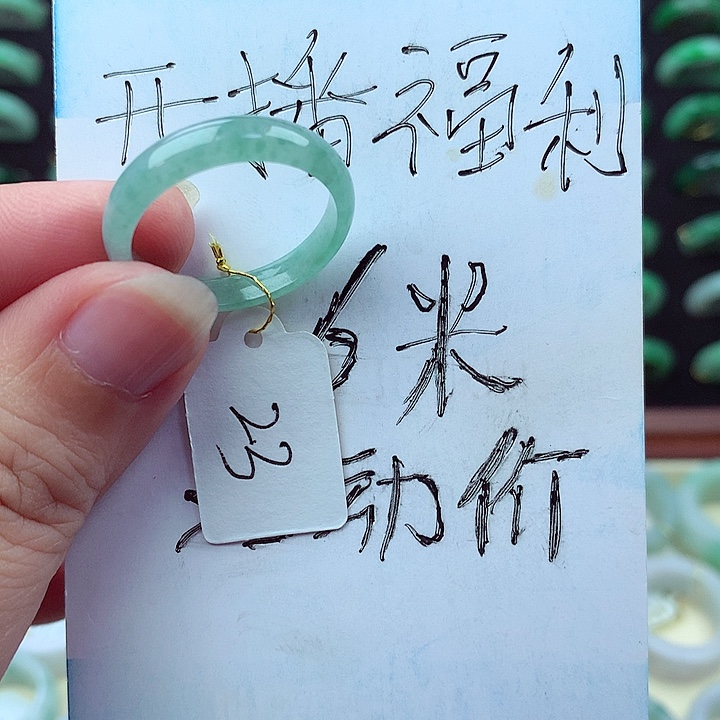 开播福利
6米
动价
23